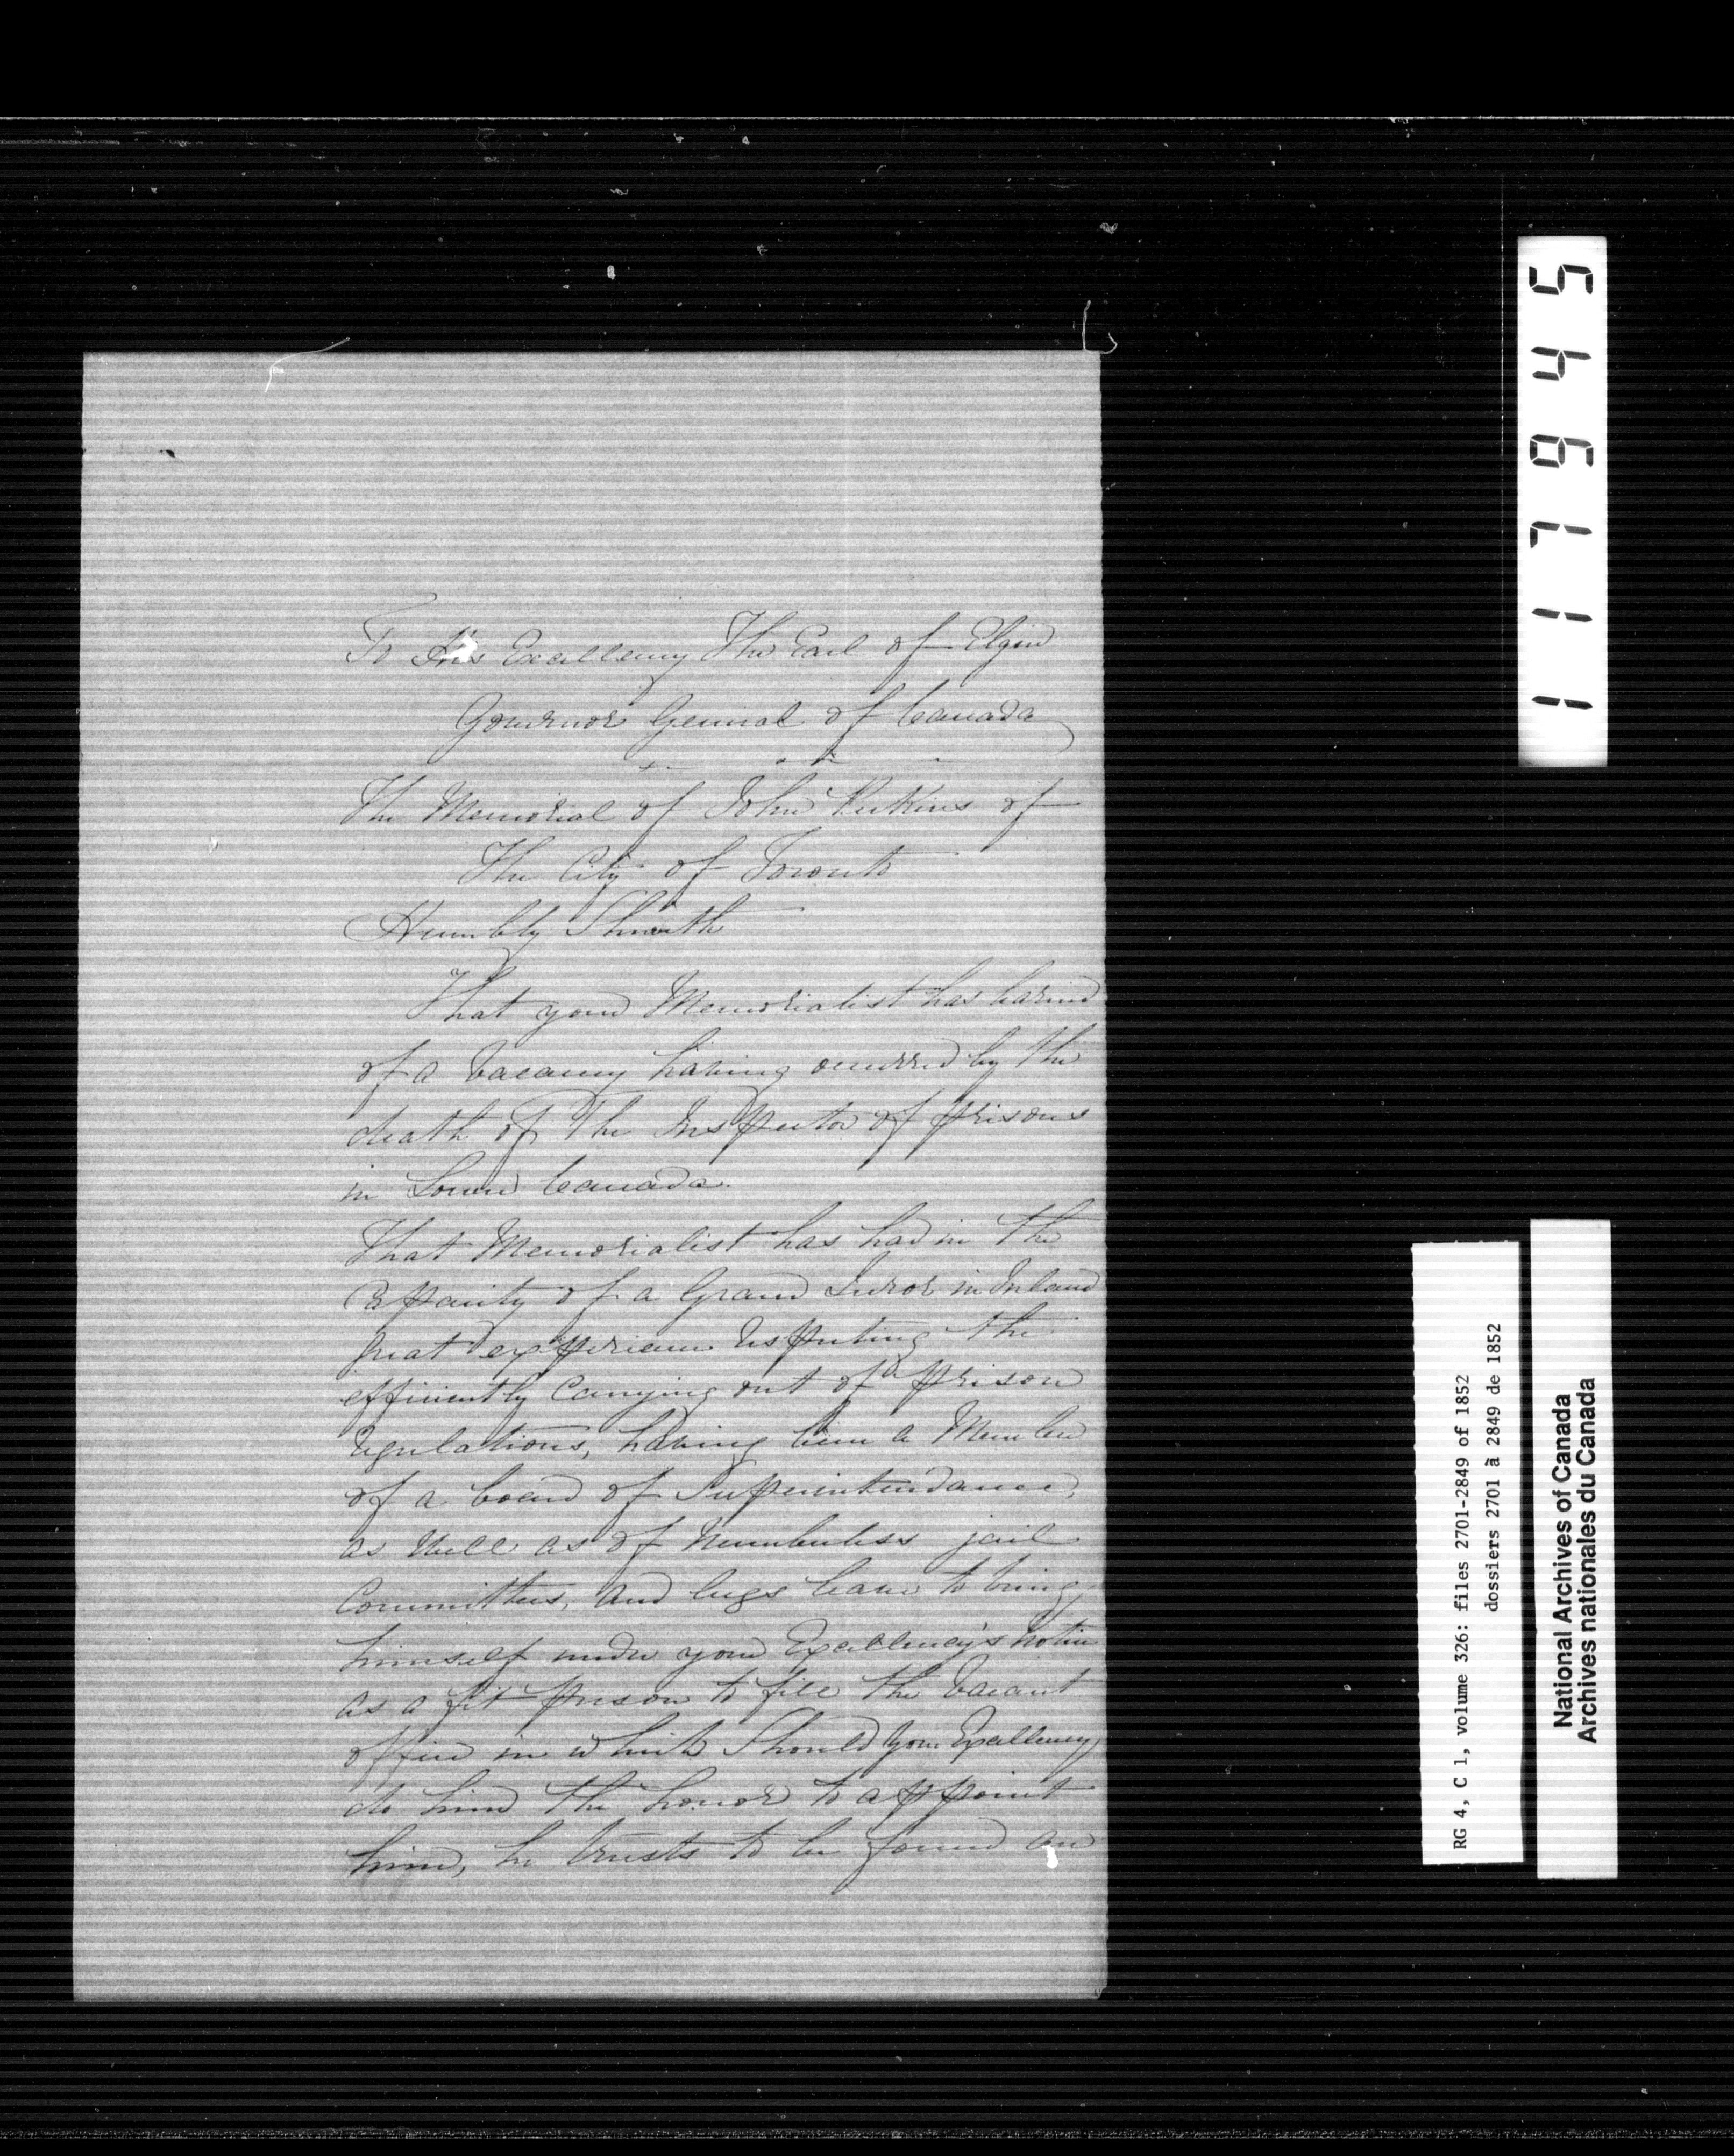 To His Excellency The Earl of Elgin
Governor General of Canada
The Memorial of John Perkins of
The City of Toronto
Humbly Sheweth
That your Memorialist has learned
of a vacancy having occurred by the
death of The Inspector of prisons
in Lower Canada.
That Memorialist has had in the
Capacity of a Grand Juror in Ireland
great experience respecting the
efficiently Carrying out of prison
regulations, having been a Member
of a board of Superintendance,
as well as of Numberless jail
Committees, and begs leave to bring
himself under your Excellency's notice
as a fit person to fill the vacant
office in which Should Your Excellency
do him the honor to appoint
him, he trusts to be found an
117645
RG 4, C 1, volume 326: files 2701-2849 of 1852
dossiers 2701 à 2849 de 1852
National Archives of Canada
Archives nationales du Canada